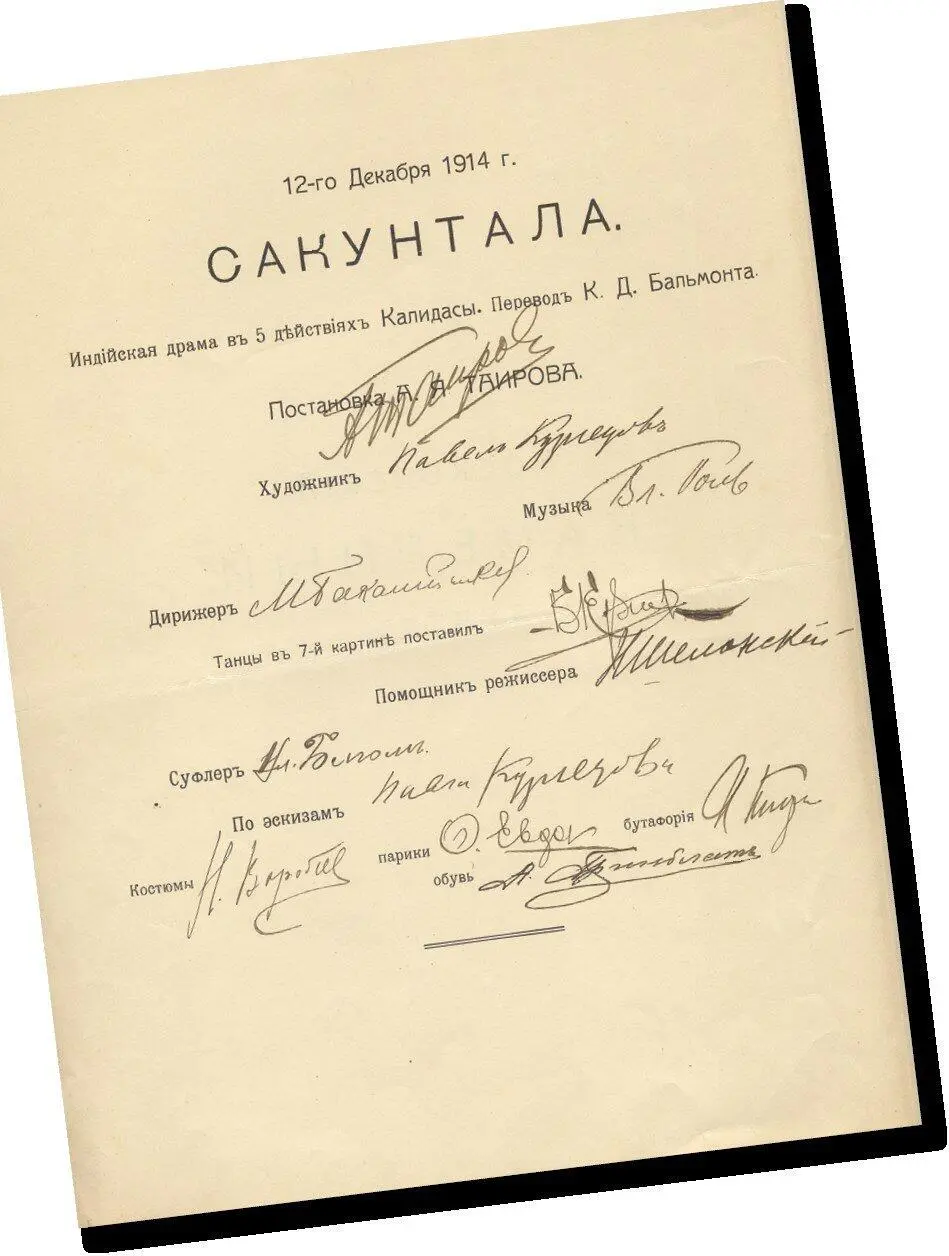 12-го Декабря 1914 г.
САКУНТАЛА.
Индійская драма въ 5 дѣйствіяхъ Калидасы. Переводъ К. Д. Бальмонта.
Постановка А. Я ТАИРОВА.
АТаиров
Художникъ Павелъ Кузнецовъ
Музыка Вл. Поль
Дирижеръ
Танцы въ 7-й картинѣ поставилъ
Помощникъ режиссера
Суфлеръ
По эскизамъ Павла Кузнецова
Костюмы Н. Воробьев парики бутафорія
обувь А. Гринблатъ